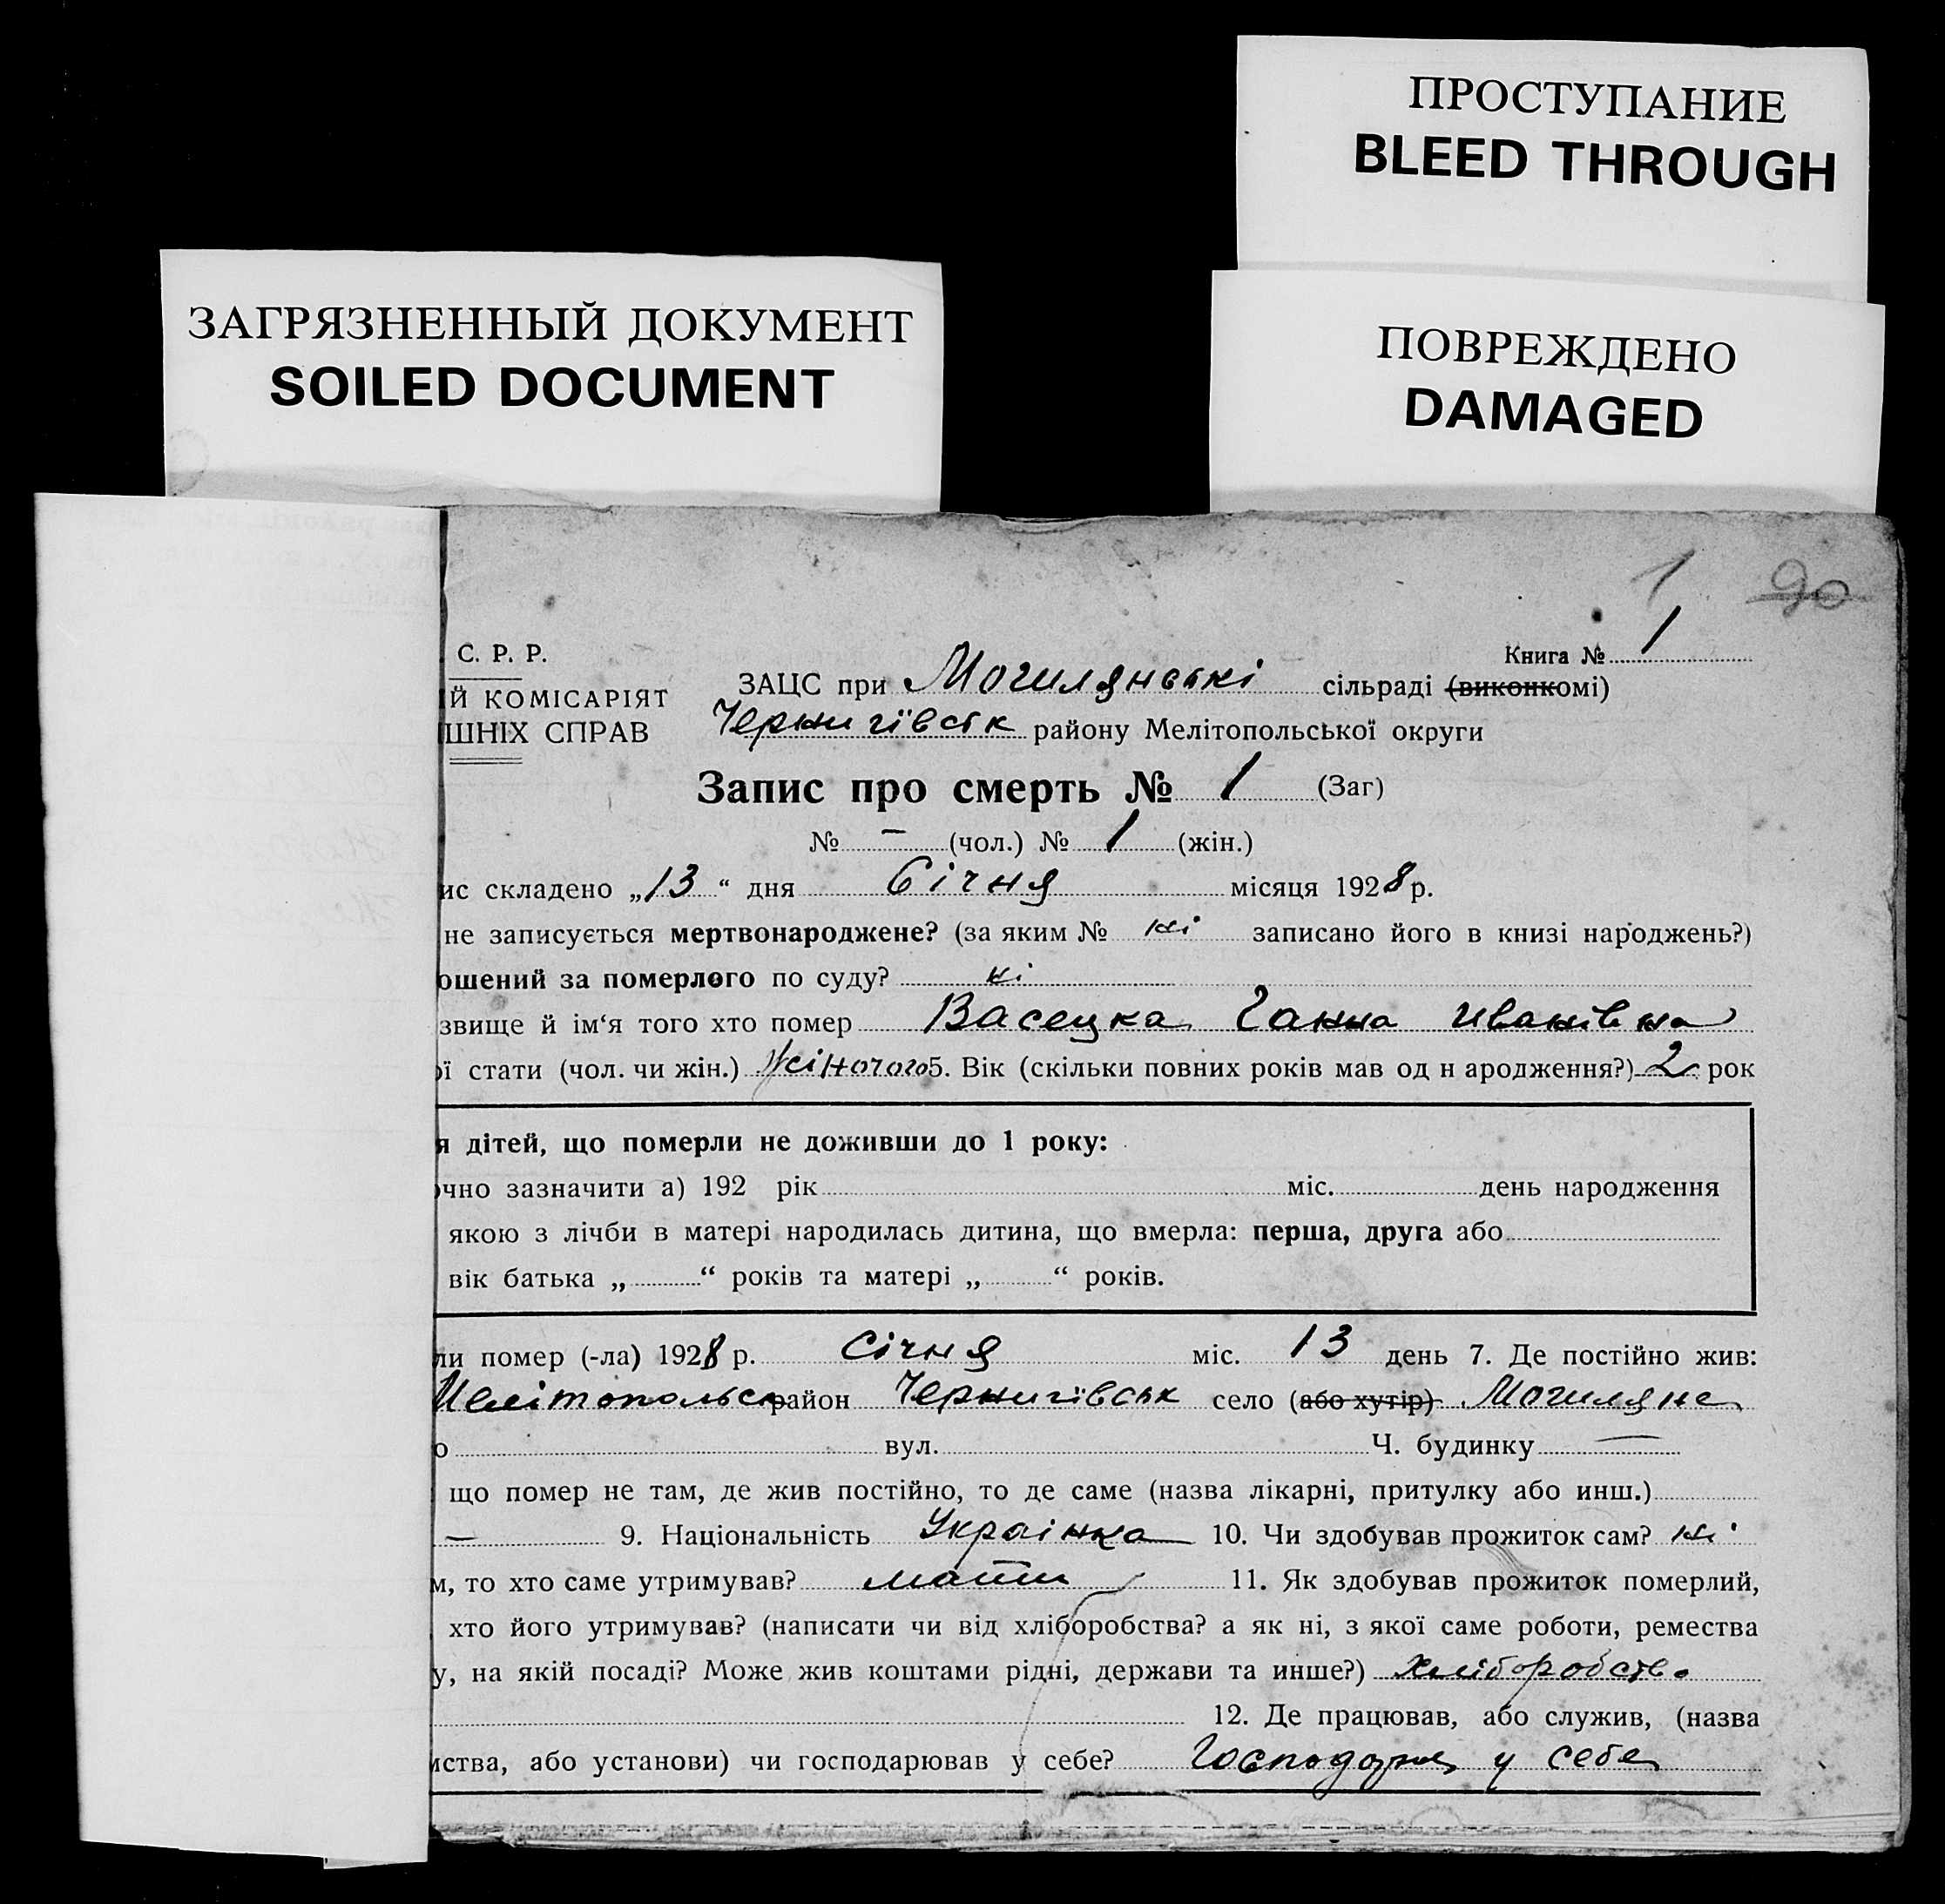 ПРОСТУПАНИЕ
BLEED THROUGH
ЗАГРЯЗНЕННЫЙ ДОКУМЕНТ
SOILED DOCUMENT
ПОВРЕЖДЕНО
DAMAGED
1 90
С. Р. Р.
Книга № 1
ЗАЦС при Могилянські сільраді (виконкомі)
Й КОМІСАРІЯТ
ШНІХ СПРАВ
Чернигївськ району Мелітопольської округи
Запис про смерть № 1 (Заг)
№ – (чол.) № 1 (жін.)
ис складено „13“ дня Січня місяця 1928 р.
не записується мертвонароджене? (за яким № ні записано його в книзі народжень?)
ошений за померлого по суду? ні
звище й ім‘я того хто помер Васецка Ганна Иванівна
ої стати (чол. чи жін.) Жіночого 5. Вік (скільки повних років мав од н ародження?) 2 рок
я дітей, що померли не доживши до 1 року:
очно зазначити а) 192 рік міс. день народження
якою з лічби в матері народилась дитина, що вмерла: перша, друга або
вік батька „ “ років та матері „ “ років.
ли помер (-ла) 1928 р. Січня міс. 13 день 7. Де постійно жив:
Мелітопольск район Чернигївськ село (або хутір) Могиляне
о вул. Ч. будинку —
що помер не там, де жив постійно, то де саме (назва лікарні, притулку або инш.)
— 9. Національність Українка 10. Чи здобував прожиток сам? ні
м, то хто саме утримував? мати 11. Як здобував прожиток померлий,
хто його утримував? (написати чи від хліборобства? а як ні, з якої саме роботи, ремества
у, на якій посаді? Може жив коштами рідні, держави та инше?) хліборобство
12. Де працював, або служив, (назва
мства, або установи) чи господарював у себе? у себе